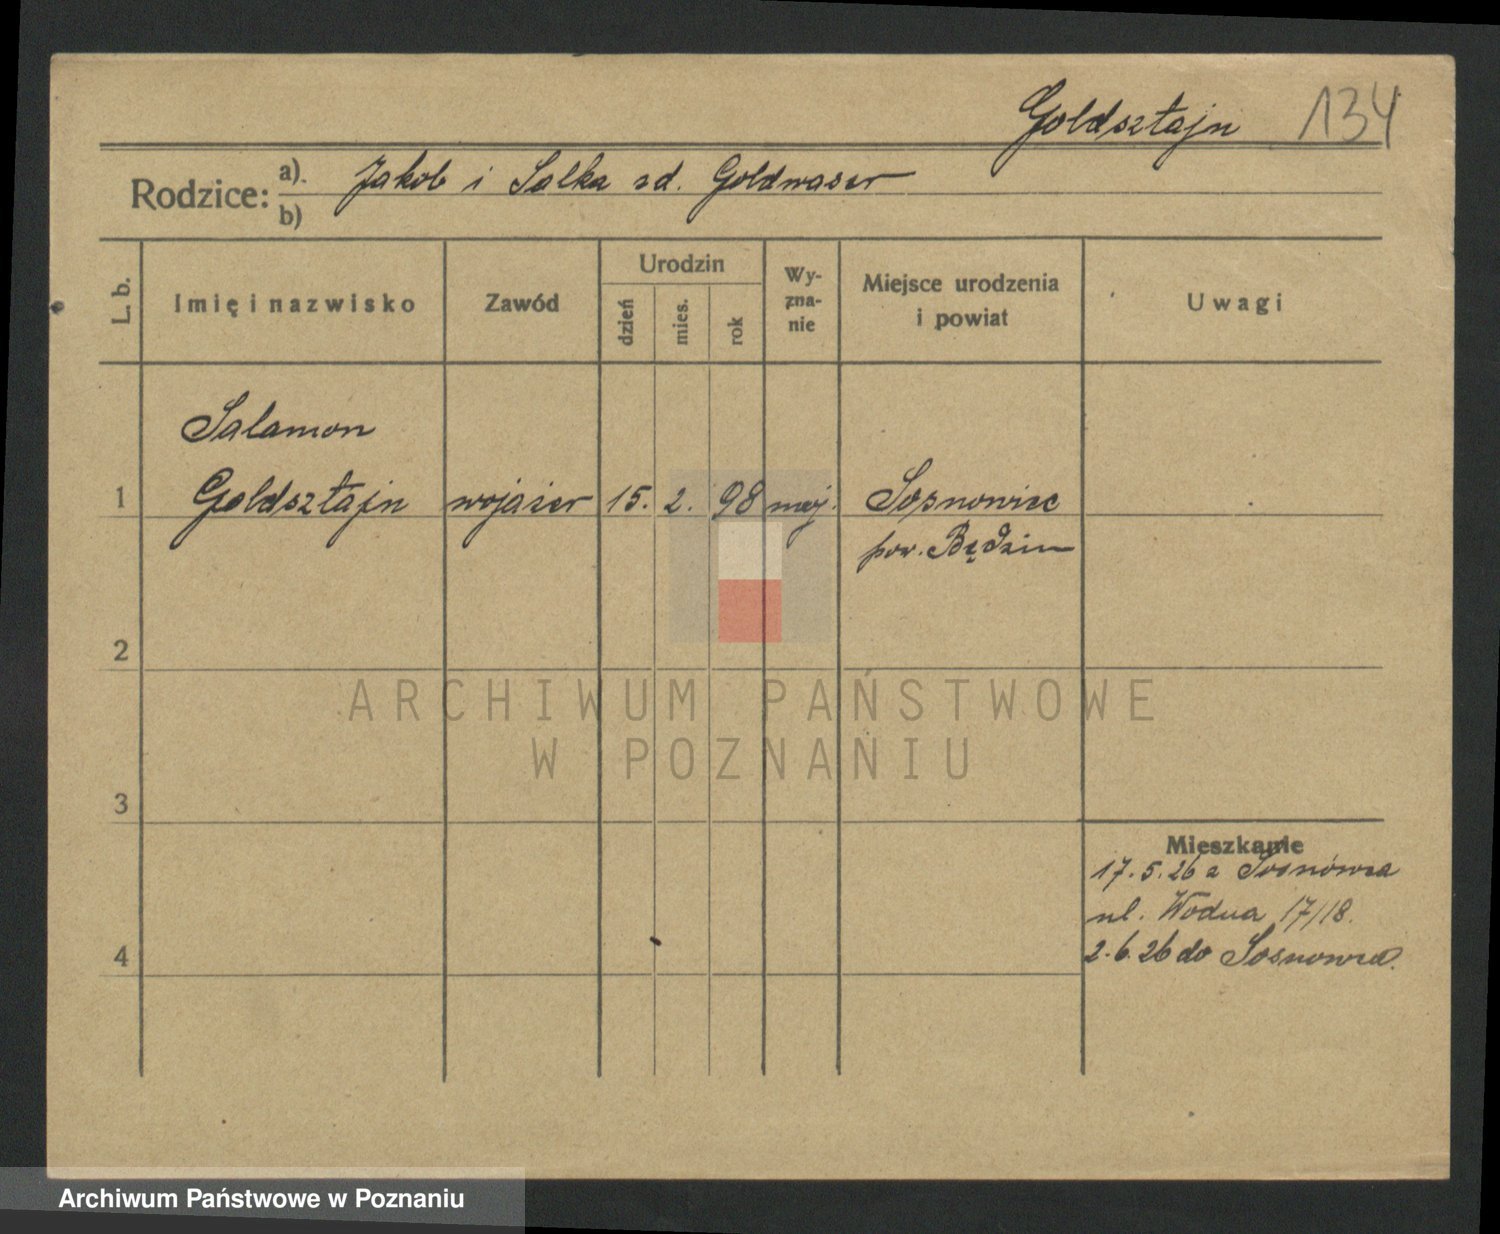 Goldsztajn 134
Rodzice: a) Jakob i Salka zd. Goldwaser
b)
L. b.
Imię i nazwisko
Zawód
Urodzin
dzień
mies.
rok
Wy-
zna-
nie
Miejsce urodzenia
i powiat
Uwagi
Salamon
1 Goldsztajn wojażer 15. 2. 98 mojż. Sosnowiec
pow. Będzin
2
3
4
Mieszkanie
17.5.26 z Sosnówca
ul. Wodna 17/18.
2.6.26 do Sosnowca.
ARCHIWUM PAŃSTWOWE
W POZNANIU
Archiwum Państwowe w Poznaniu